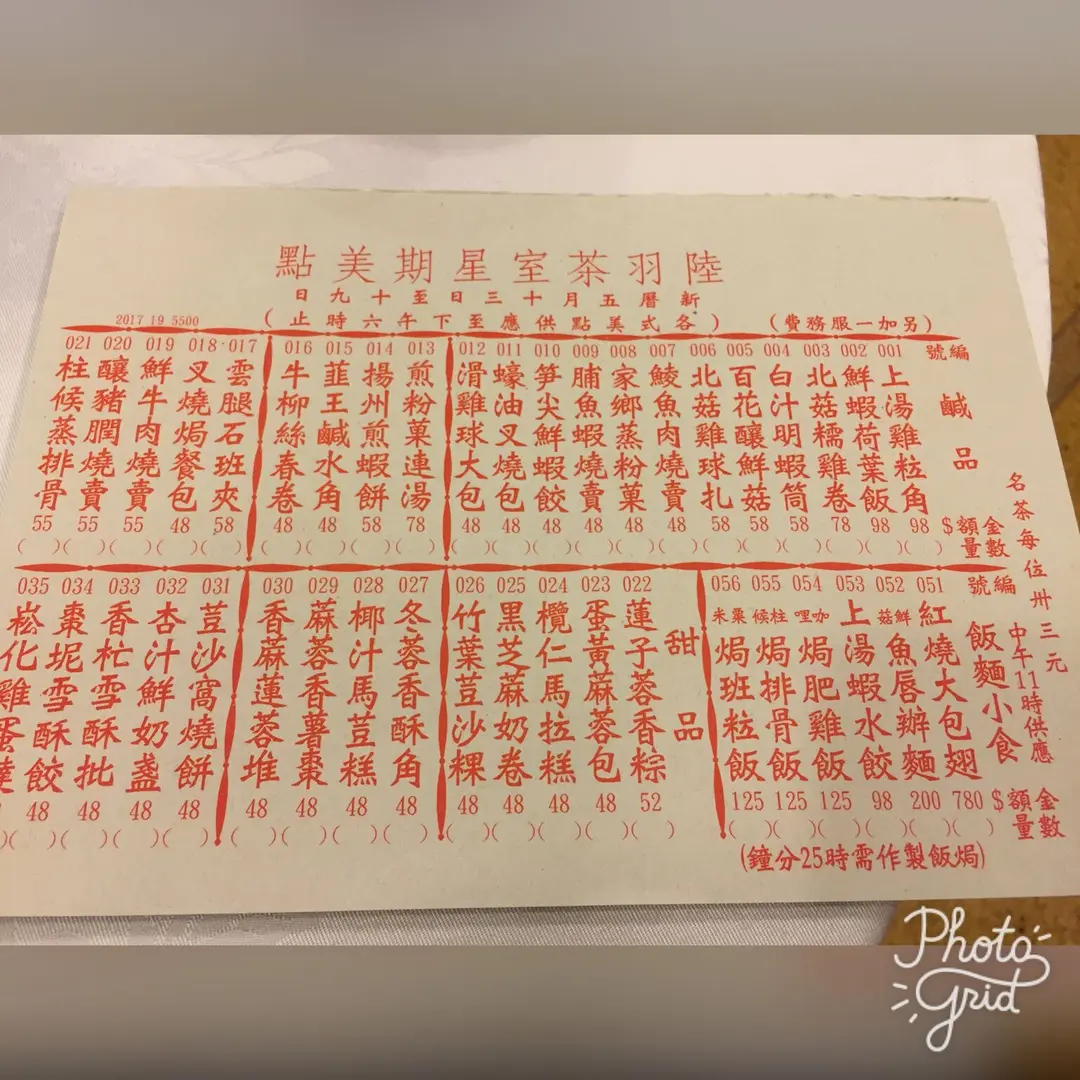 陸羽茶室星期美點
新曆五月十三日至十九日
(另加一服務費)
(各式美點供應至下午六時止)
2017 19 5500
名茶每位卅三元
編號
鹹品
金額
數量
$
001 上湯雞粒角 98 ( )
002 鮮蝦荷葉飯 98 ( )
003 北菇糯雞卷 78 ( )
004 白汁明蝦筒 58 ( )
005 百花釀鮮菇 58 ( )
006 北菇雞球扎 58 ( )
007 鯪魚肉燒賣 48 ( )
008 家鄉蒸粉菓 48 ( )
009 脯魚蝦燒賣 48 ( )
010 笋尖鮮蝦餃 48 ( )
011 蠔油叉燒包 48 ( )
012 滑雞球大包 48 ( )
013 煎粉菓連湯 78 ( )
014 揚州煎蝦餅 58 ( )
015 韮王鹹水角 48 ( )
016 牛柳絲春卷 48 ( )
017 雲腿石班夾 58 ( )
018 叉燒焗餐包 48 ( )
019 鮮牛肉燒賣 55 ( )
020 釀豬膶燒賣 55 ( )
021 柱候蒸排骨 55 ( )
編號
飯麵小食
中午11時供應
金額
數量
$
051 紅燒大包翅 780 ( )
052 鮮菇魚唇辦麵 200 ( )
053 上湯蝦水餃 98 ( )
054 咖哩焗肥雞飯 125 ( )
055 柱候焗排骨飯 125 ( )
056 粟米焗班粒飯 125 ( )
(焗飯製作需時25分鐘)
甜品
022 蓮子蓉香粽 52 ( )
023 蛋黃蔴蓉包 48 ( )
024 欖仁馬拉糕 48 ( )
025 黑芝蔴奶卷 48 ( )
026 竹葉荳沙粿 48 ( )
027 冬蓉香酥角 48 ( )
028 椰汁馬荳糕 48 ( )
029 蔴蓉香薯棗 48 ( )
030 香蔴蓮蓉堆 48 ( )
031 荳沙窩燒餅 48 ( )
032 杏汁鮮奶盞 48 ( )
033 香杧雪酥批 48 ( )
034 棗坭雪酥餃 48 ( )
035 崧化雞蛋撻
Photo Grid